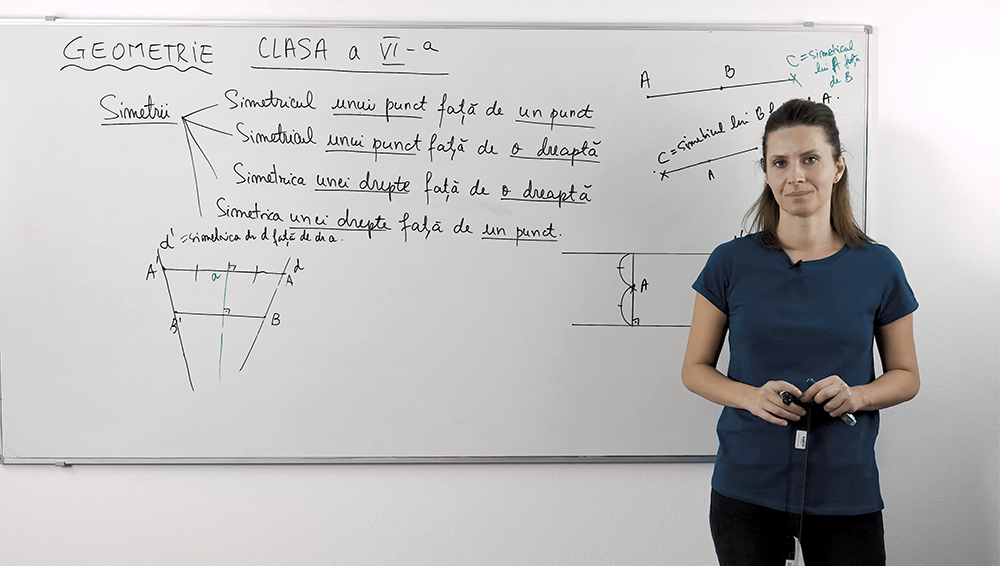 GEOMETRIE CLASA a VI-a
Simetrii
Simetricul unui punct față de un punct
Simetricul unui punct față de o dreaptă
Simetrica unei drepte față de o dreaptă
Simetrica unei drepte față de un punct.
d' = simetrica lui d față de dr a.
A' a A d
B' B
A B
C = simetricul
lui A față
de B
C = simetricul lui B A.
A
A